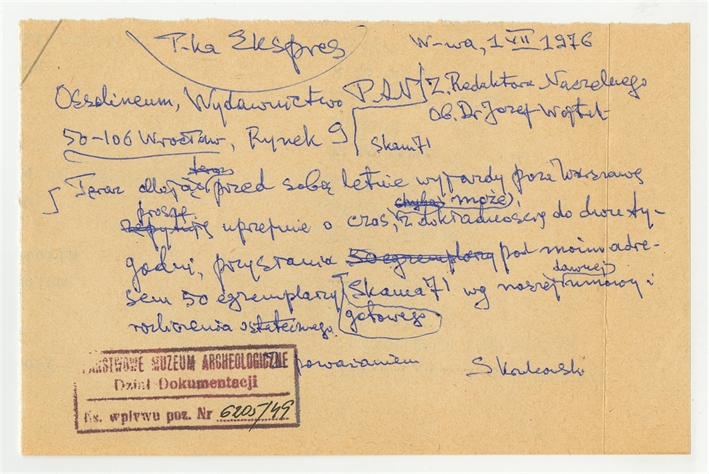 P-ka Ekspres
W-wa, 1 VII 1976
Ossolineum, Wydawnictwo PAN
Z. Redaktora Naczelnego
Ob. Dr Józef Wojtal
50-106 Wrocław, Rynek 9
Skam 71
teraz
Teraz przed sobą letnie wyjazdy poza Warszawę
chyba może),
proszę uprzejmie o czas, (z dokładnością do dwu ty-
godni, przysłania 50 egzemplarzy pod moim adre-
dawniej
sem 50 egzemplarzy Skama 71 wg naszej umowy i
rozliczenia ostatecznego. gotowego
poważaniem
PAŃSTWOWE MUZEUM ARCHEOLOGICZNE
Dział Dokumentacji
Ks. wpływu poz. Nr 6205/49